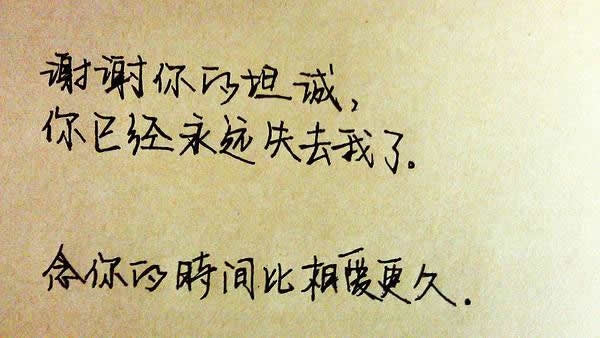 谢谢你的坦诚，
你已经永远失去我了.
念你的時间比相愛更久.